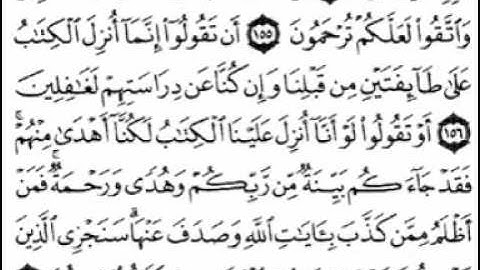 وَٱتَّقُوا۟ لَعَلَّكُمْ تُرْحَمُونَ ١٥٥ أَن تَقُولُوٓا۟ إِنَّمَآ أُنزِلَ ٱلْكِتَٰبُ
عَلَىٰ طَآئِفَتَيْنِ مِن قَبْلِنَا وَإِن كُنَّا عَن دِرَاسَتِهِمْ لَغَٰفِلِينَ
١٥٦ أَوْ تَقُولُوا۟ لَوْ أَنَّآ أُنزِلَ عَلَيْنَا ٱلْكِتَٰبُ لَكُنَّآ أَهْدَىٰ مِنْهُمْ ۚ
فَقَدْ جَآءَكُم بَيِّنَةٌ مِّن رَّبِّكُمْ وَهُدًى وَرَحْمَةٌ ۚ فَمَنْ
أَظْلَمُ مِمَّن كَذَّبَ بِـَٔايَٰتِ ٱللَّهِ وَصَدَفَ عَنْهَا ۗ سَنَجْزِى ٱلَّذِينَ